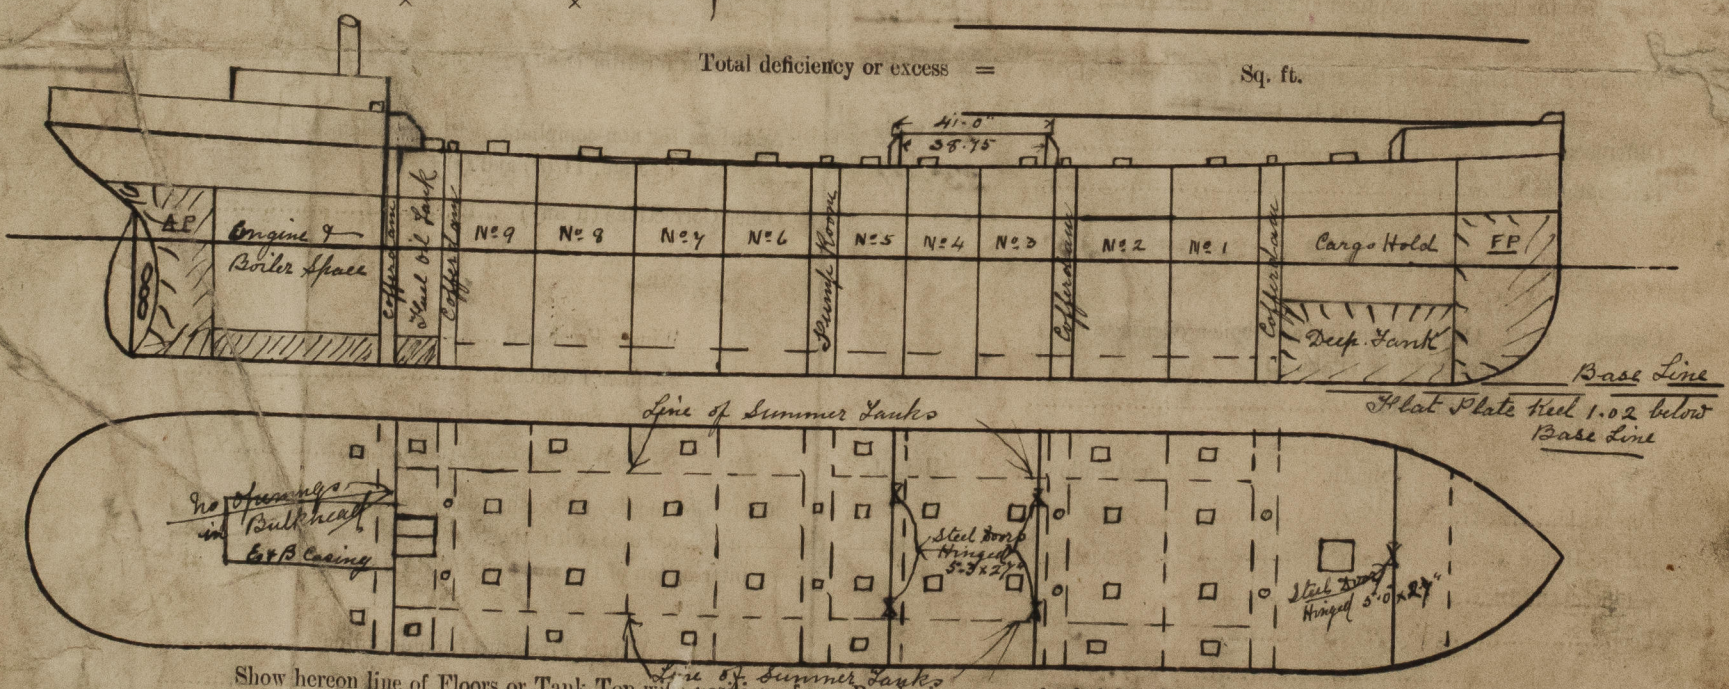 Total deficiency or excess = Sq. ft.
41'-0"
38.75
AP
Engine &
Boiler Space
Cofferdam
Fuel Oil Tank
Cofferdam
No 9
No 8
No 7
No 6
Pump Room
No 5
No 4
No 3
Cofferdam
No 2
No 1
Cofferdam
Cargo Hold
FP
Deep Tank
Base Line
Flat Plate Keel 1.02 below
Base Line
Line of Summer Tanks
No openings
in Bulkhead
E & B Casing
Steel Doors
Hinged
Steel Door
Hinged 5'-0" x 27"
Line of Summer Tanks
Show hereon line of Floors or Tank Top